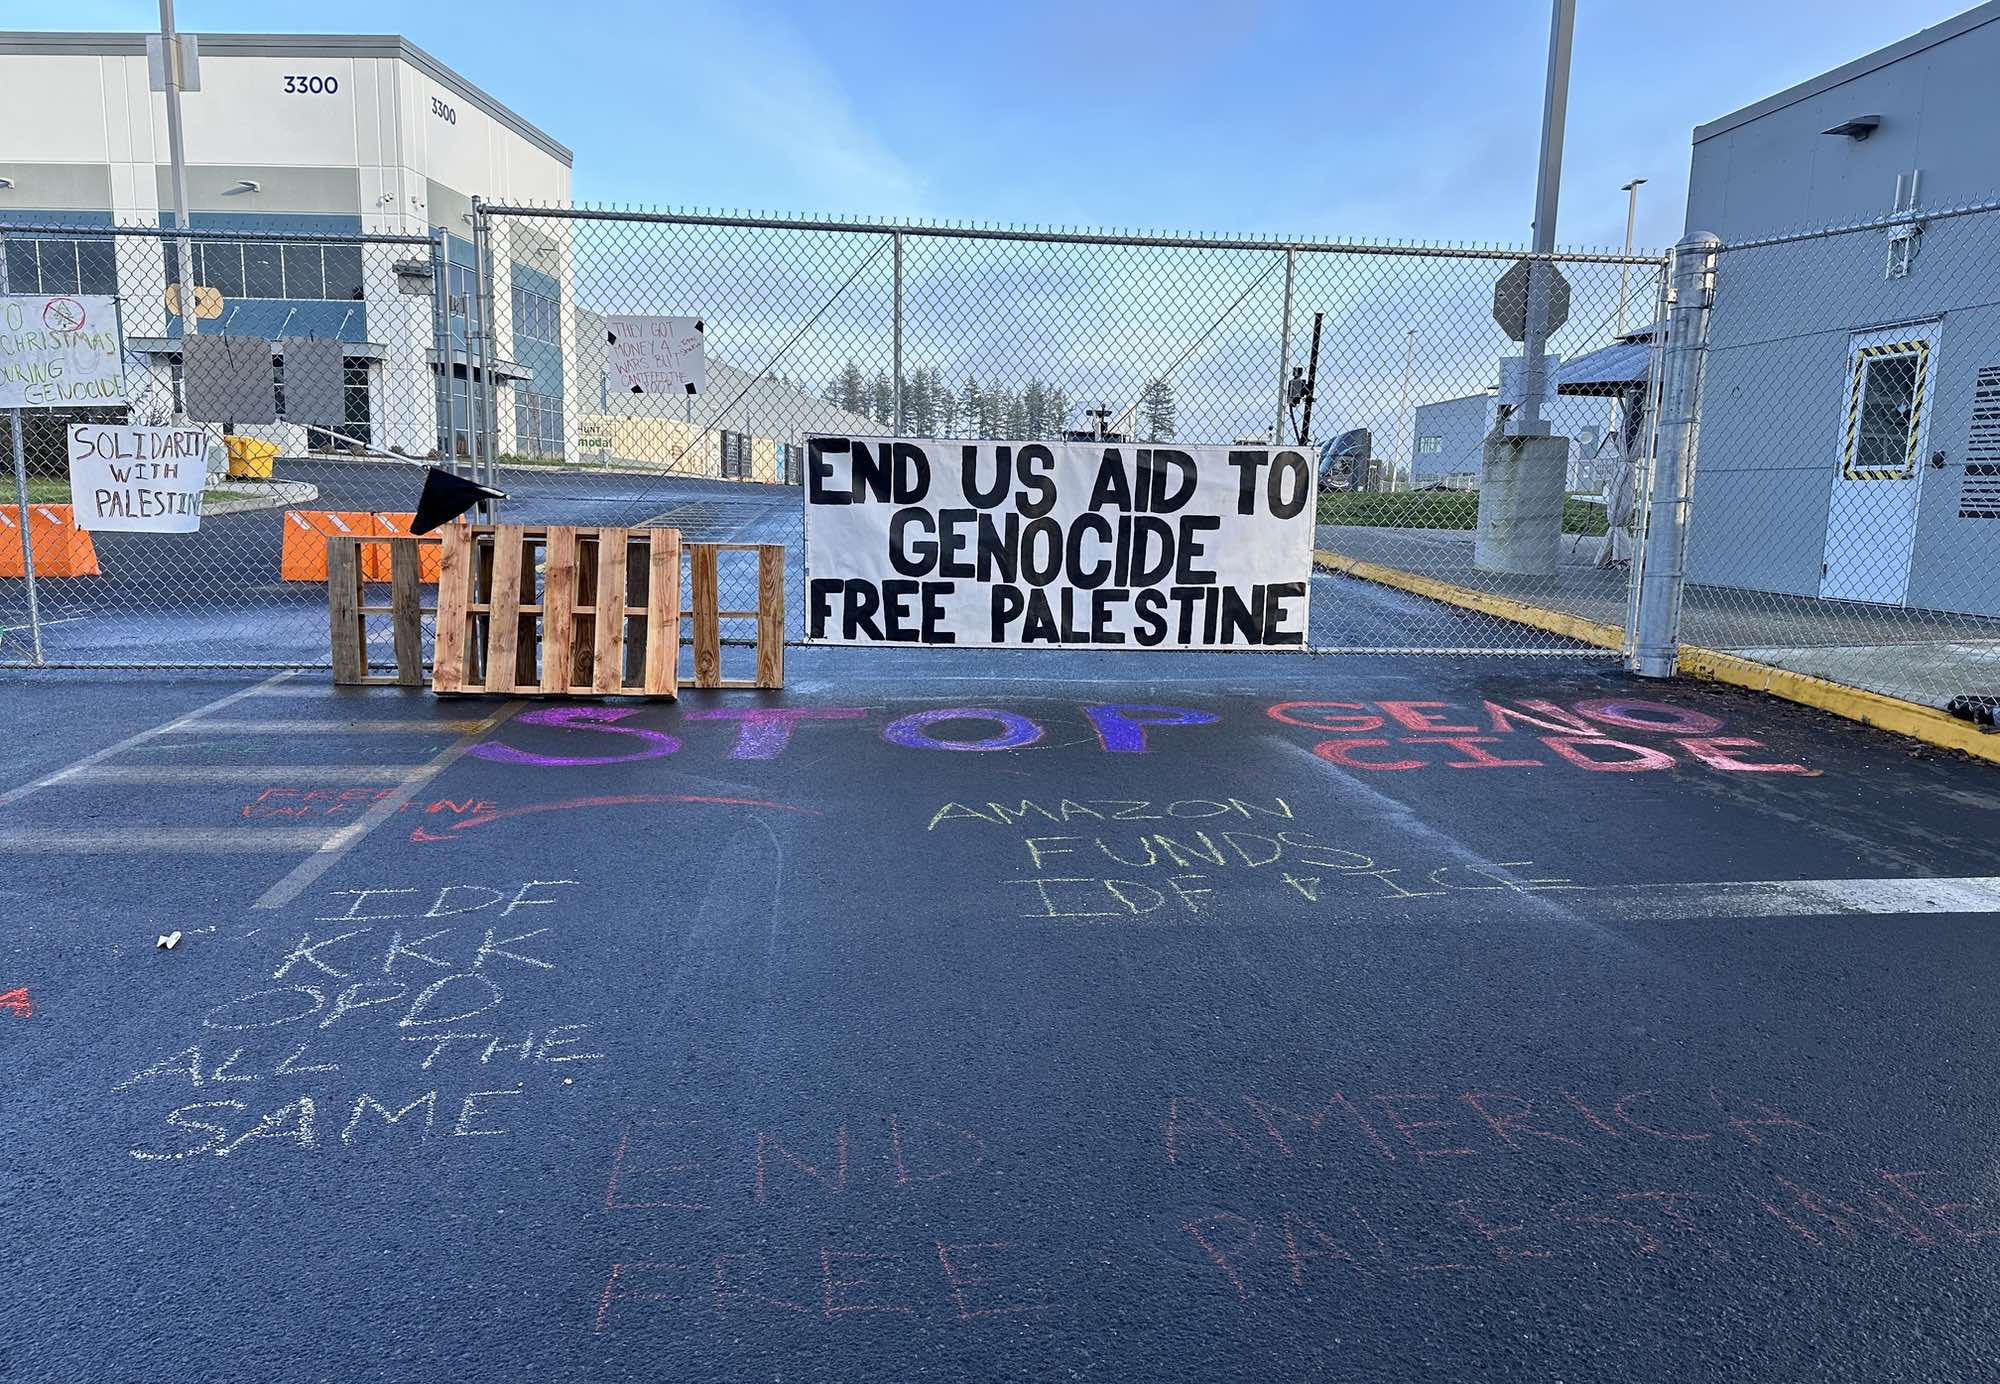 3300
3300
NO
CHRISTMAS
DURING
GENOCIDE
SOLIDARITY
WITH
PALESTINE
THEY GOT
MONEY 4
WARS BUT
CANT FEED THE
POOR
END US AID TO
GENOCIDE
FREE PALESTINE
STOP
GENO
CIDE
FREE
PALESTINE
AMAZON
FUNDS
IDF & ICE
IDF
KKK
OPD
ALL THE
SAME
END AMERICA
FREE PALESTINE